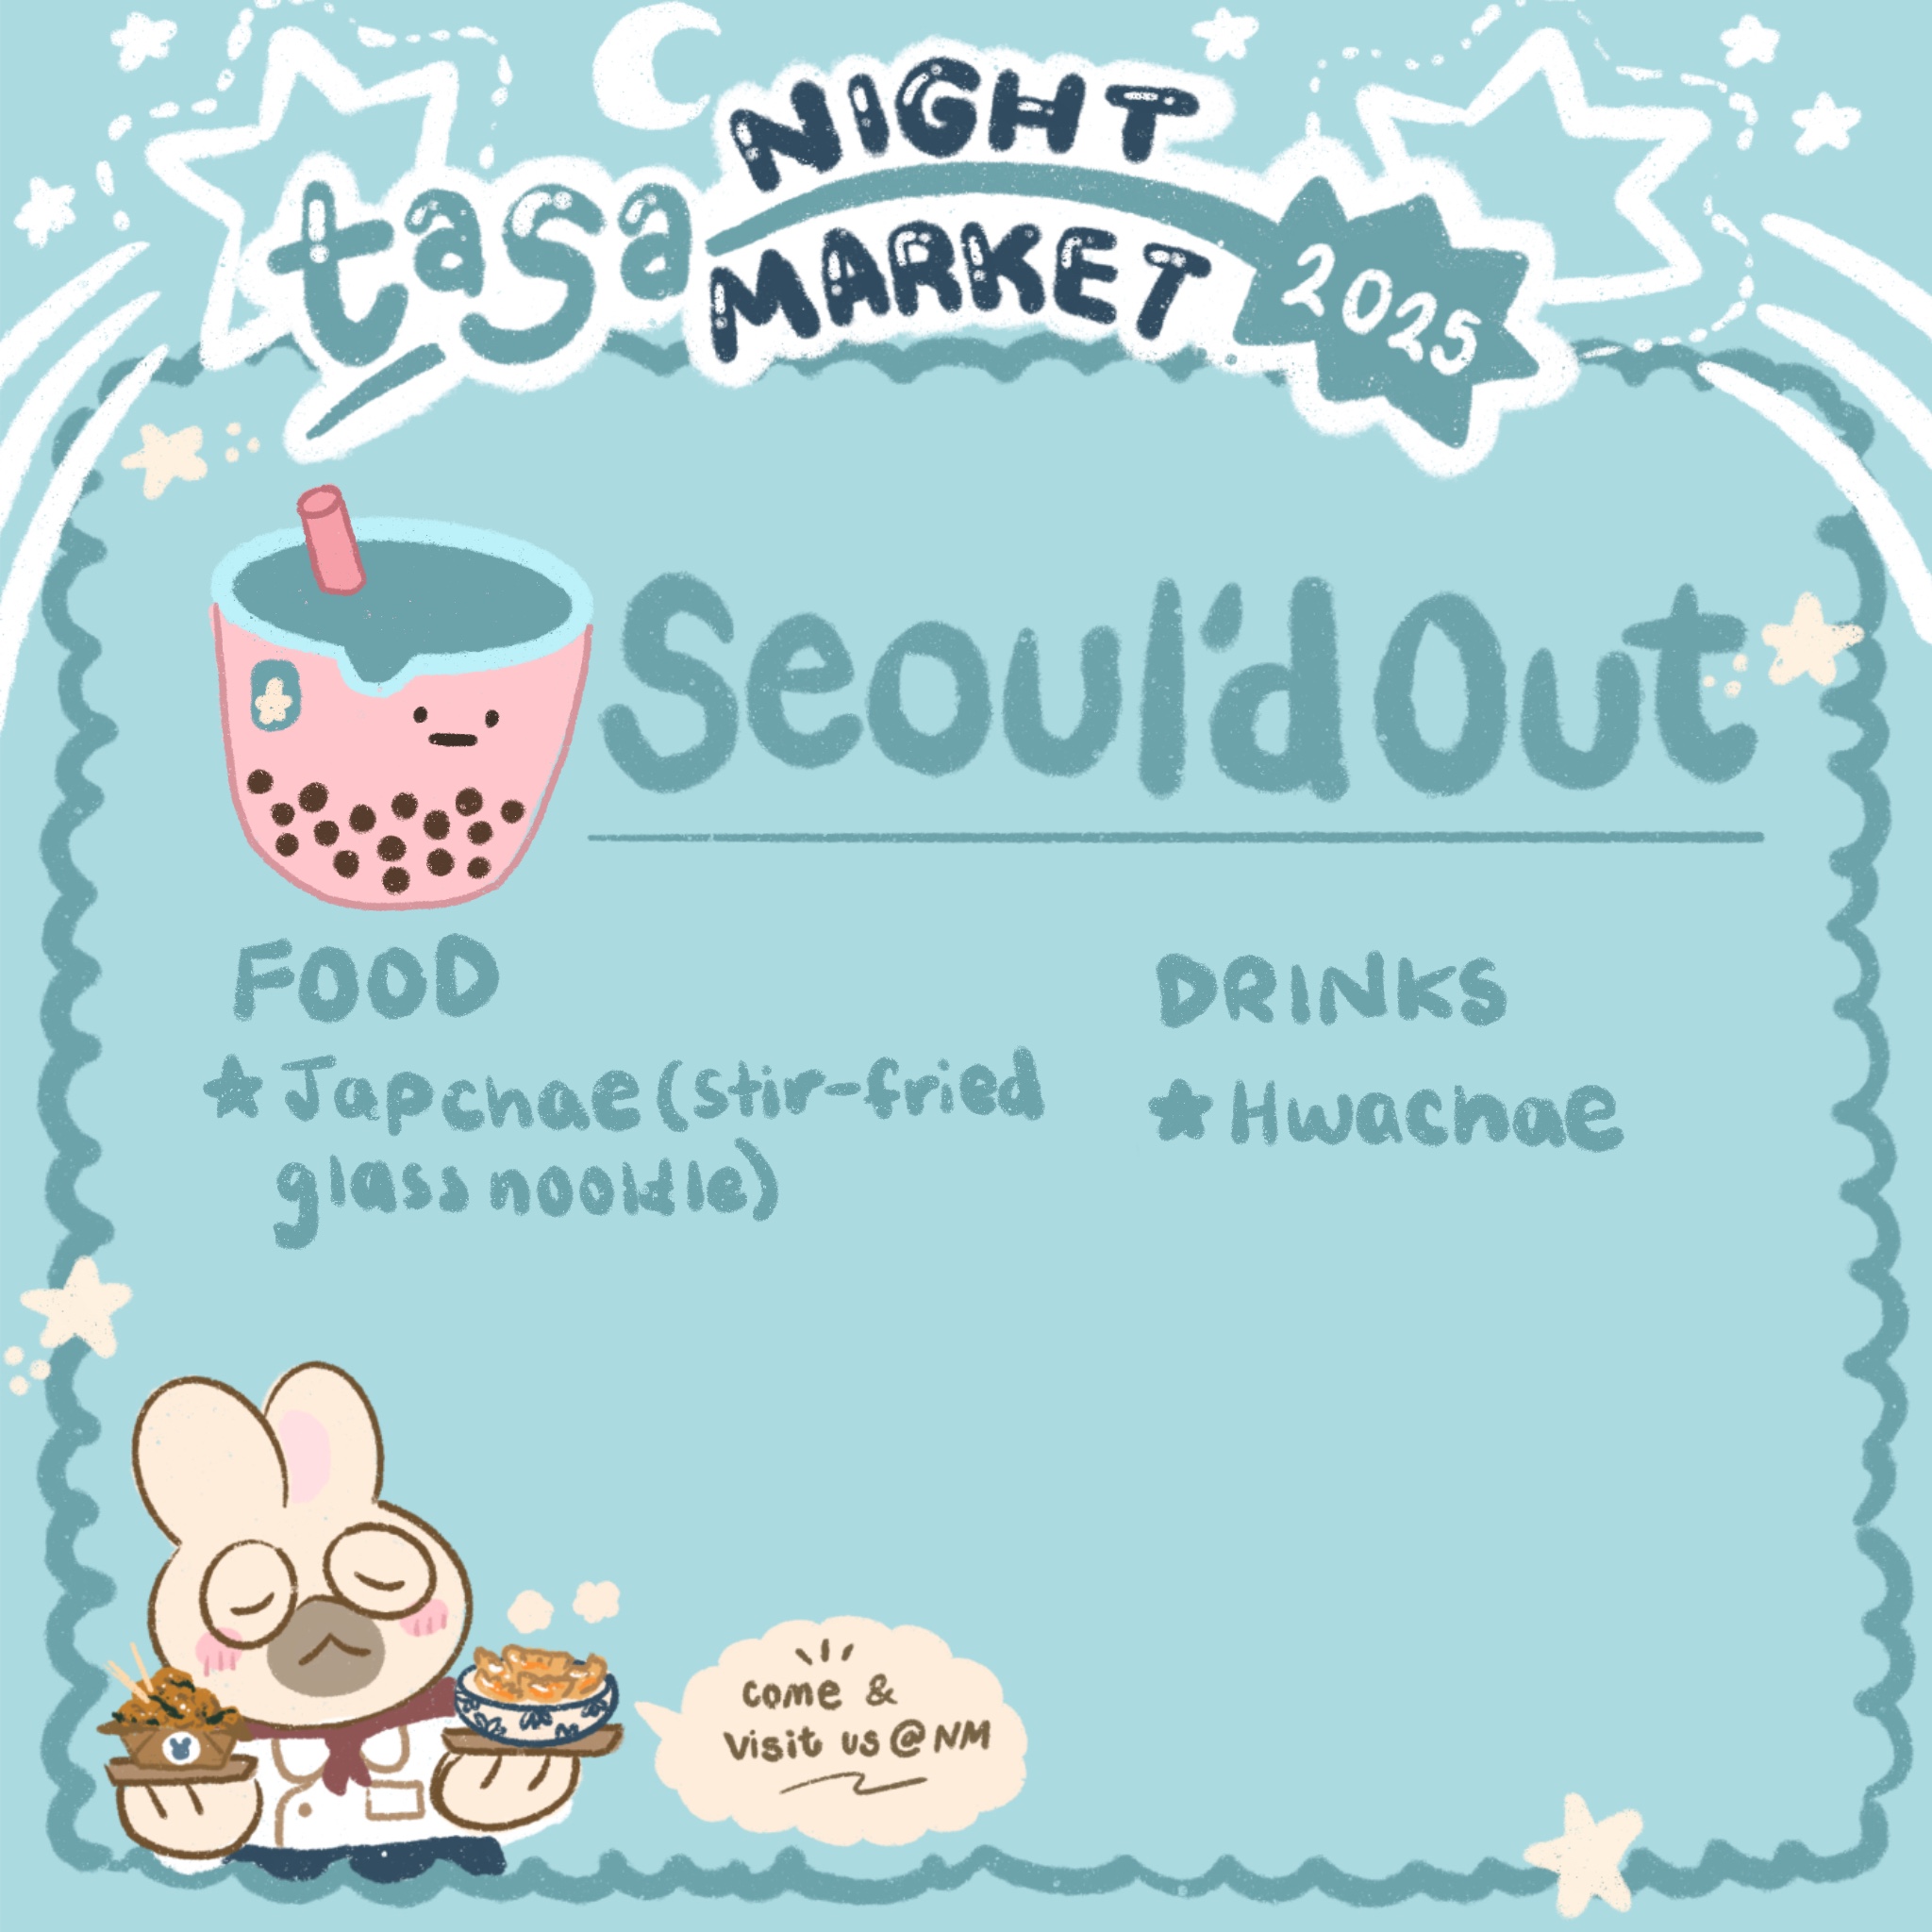 tasa NIGHT MARKET 2025
Seoul'd Out
FOOD
★ Japchae (stir-fried
glass noodle)
DRINKS
★ Hwachae
come &
visit us @ NM